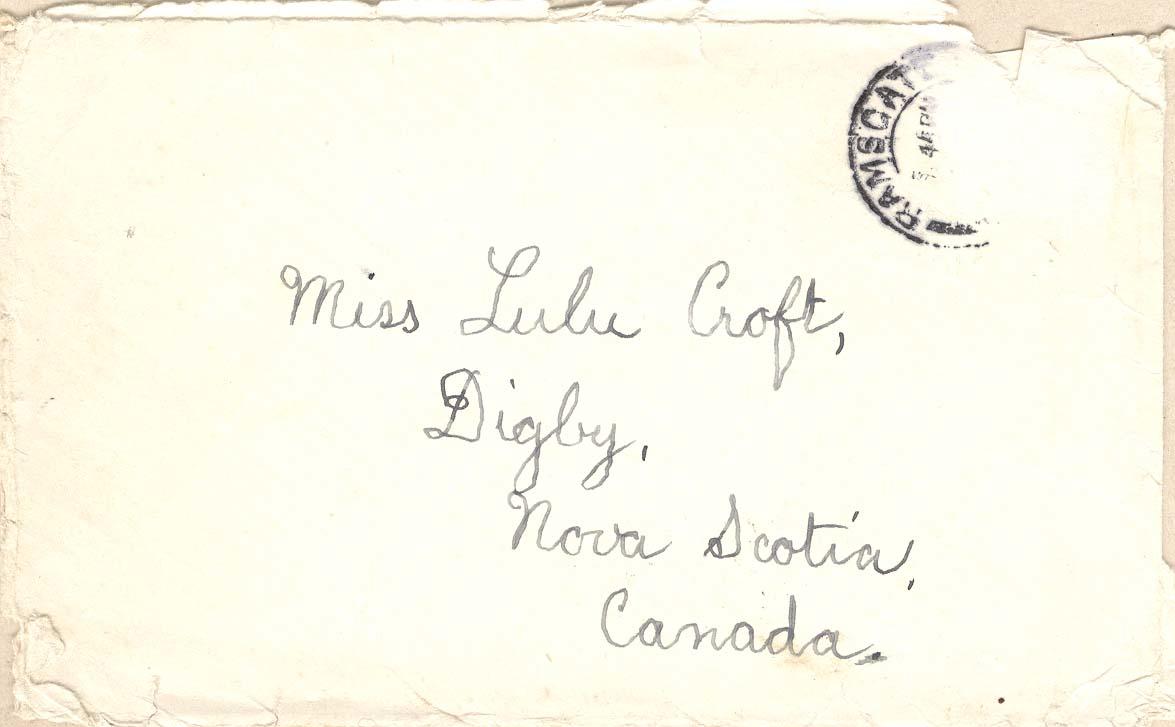 RAMSGAT
Miss Lulu Croft,
Digby,
Nova Scotia,
Canada.